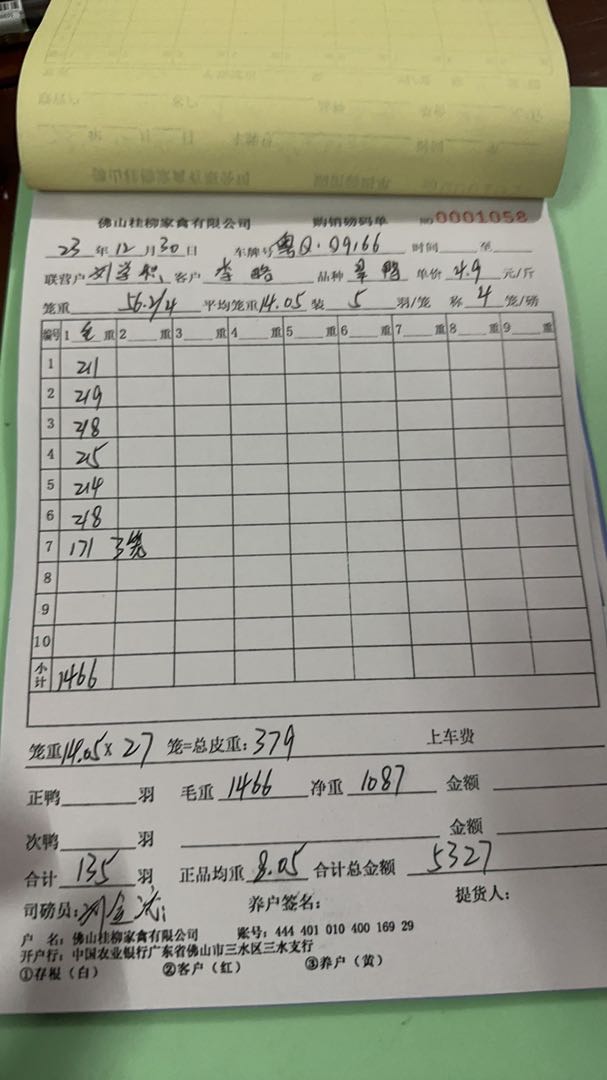 佛山桂柳家禽有限公司 购销磅码单 NO 0001058
23年12月30日 车牌号粤Q·Q9166 时间 至
联营户 刘学积 客户 李皓 品种 鸭 单价 4.9 元/斤
笼重 56.2/4 平均笼重14.05 装 5 羽/笼 称 4 笼/磅
编号 1 毛 重 2 重 3 重 4 重 5 重 6 重 7 重 8 重 9 重
1 211
2 219
3 218
4 215
5 214
6 218
7 171 3笼
8
9
10
小计 1466
笼重14.05×27 笼=总皮重:379 上车费
正鸭 羽 毛重 1466 净重 1087 金额
次鸭 羽 金额
合计 135 羽 正品均重 8.05 合计总金额 5327
司磅员: 养户签名: 提货人:
户 名:佛山桂柳家禽有限公司 账号:444 401 010 400 169 29
开户行:中国农业银行广东省佛山市三水区三水支行
①存根(白) ②客户(红) ③养户(黄)